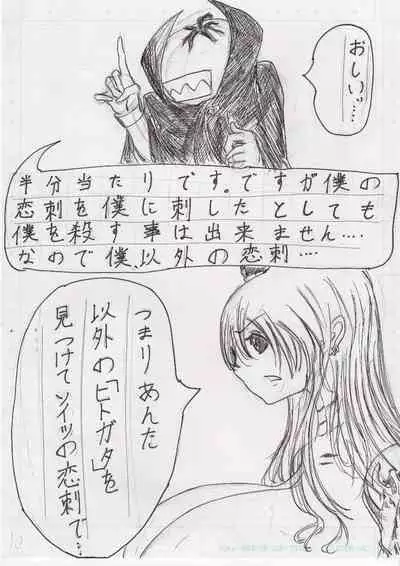 おしいっ……
半分当たりです。ですが僕の
恋刺を僕に刺したとしても
僕を殺す事は出来ません‥‥
なので僕、以外の恋刺‥‥
つまりあんた
以外の「ヒトガタ」を
見つけてソイツの恋刺で‥